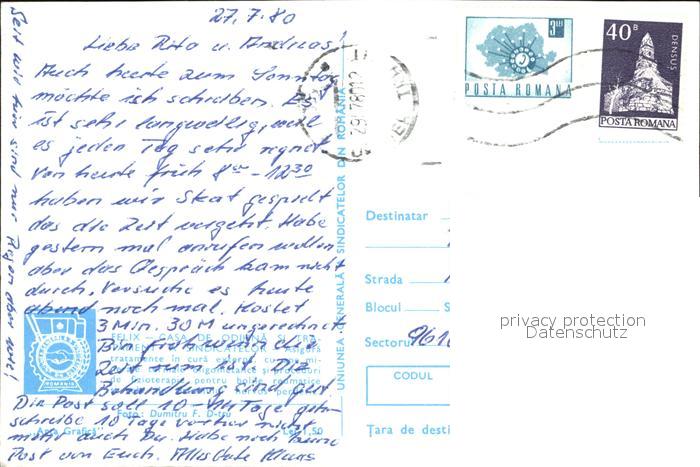 27.7.80
Liebe Rita u. Andreas!
Auch heute zum Sonntag
möchte ich schreiben. Es
ist sehr langweilig, weil
es jeden Tag sehr regnet
Von heute früh 8 00 - 12 30
haben wir Skat gespielt
das die Zeit vergeht. Habe
gestern mal anrufen wollen
aber das Gespräch kam nicht
durch. Versuche es heute
abend noch mal. Kostet
3 Min. 30 M ungerechnet
Bin froh wenn die
Zeit rum ist. Die
Behandlung sind gut
Die Post soll 10 - Tage gehn
schreibe 10 Tage vorher nicht
mehr auch Du. Habe noch keine
Post von Euch. Alles Gute Klaus
Seit wir hier sind nur Regen aber
FELIX - CASA DE ODIHNĂ
tratamente în cură
de fizioterapie pentru
Foto: Dumitru F. D-tru
Arta Grafică
Lei 1,50
ROMÂNIA
UNIUNEA GENERALĂ A SINDICATELOR DIN ROMÂNIA
3 LEI
POSTA ROMANA
40 B
DENSUȘ
POSTA ROMANA
Destinatar
Strada
Blocul
S
Sectorul
CODUL
Țara de desti
privacy protection
Datenschutz